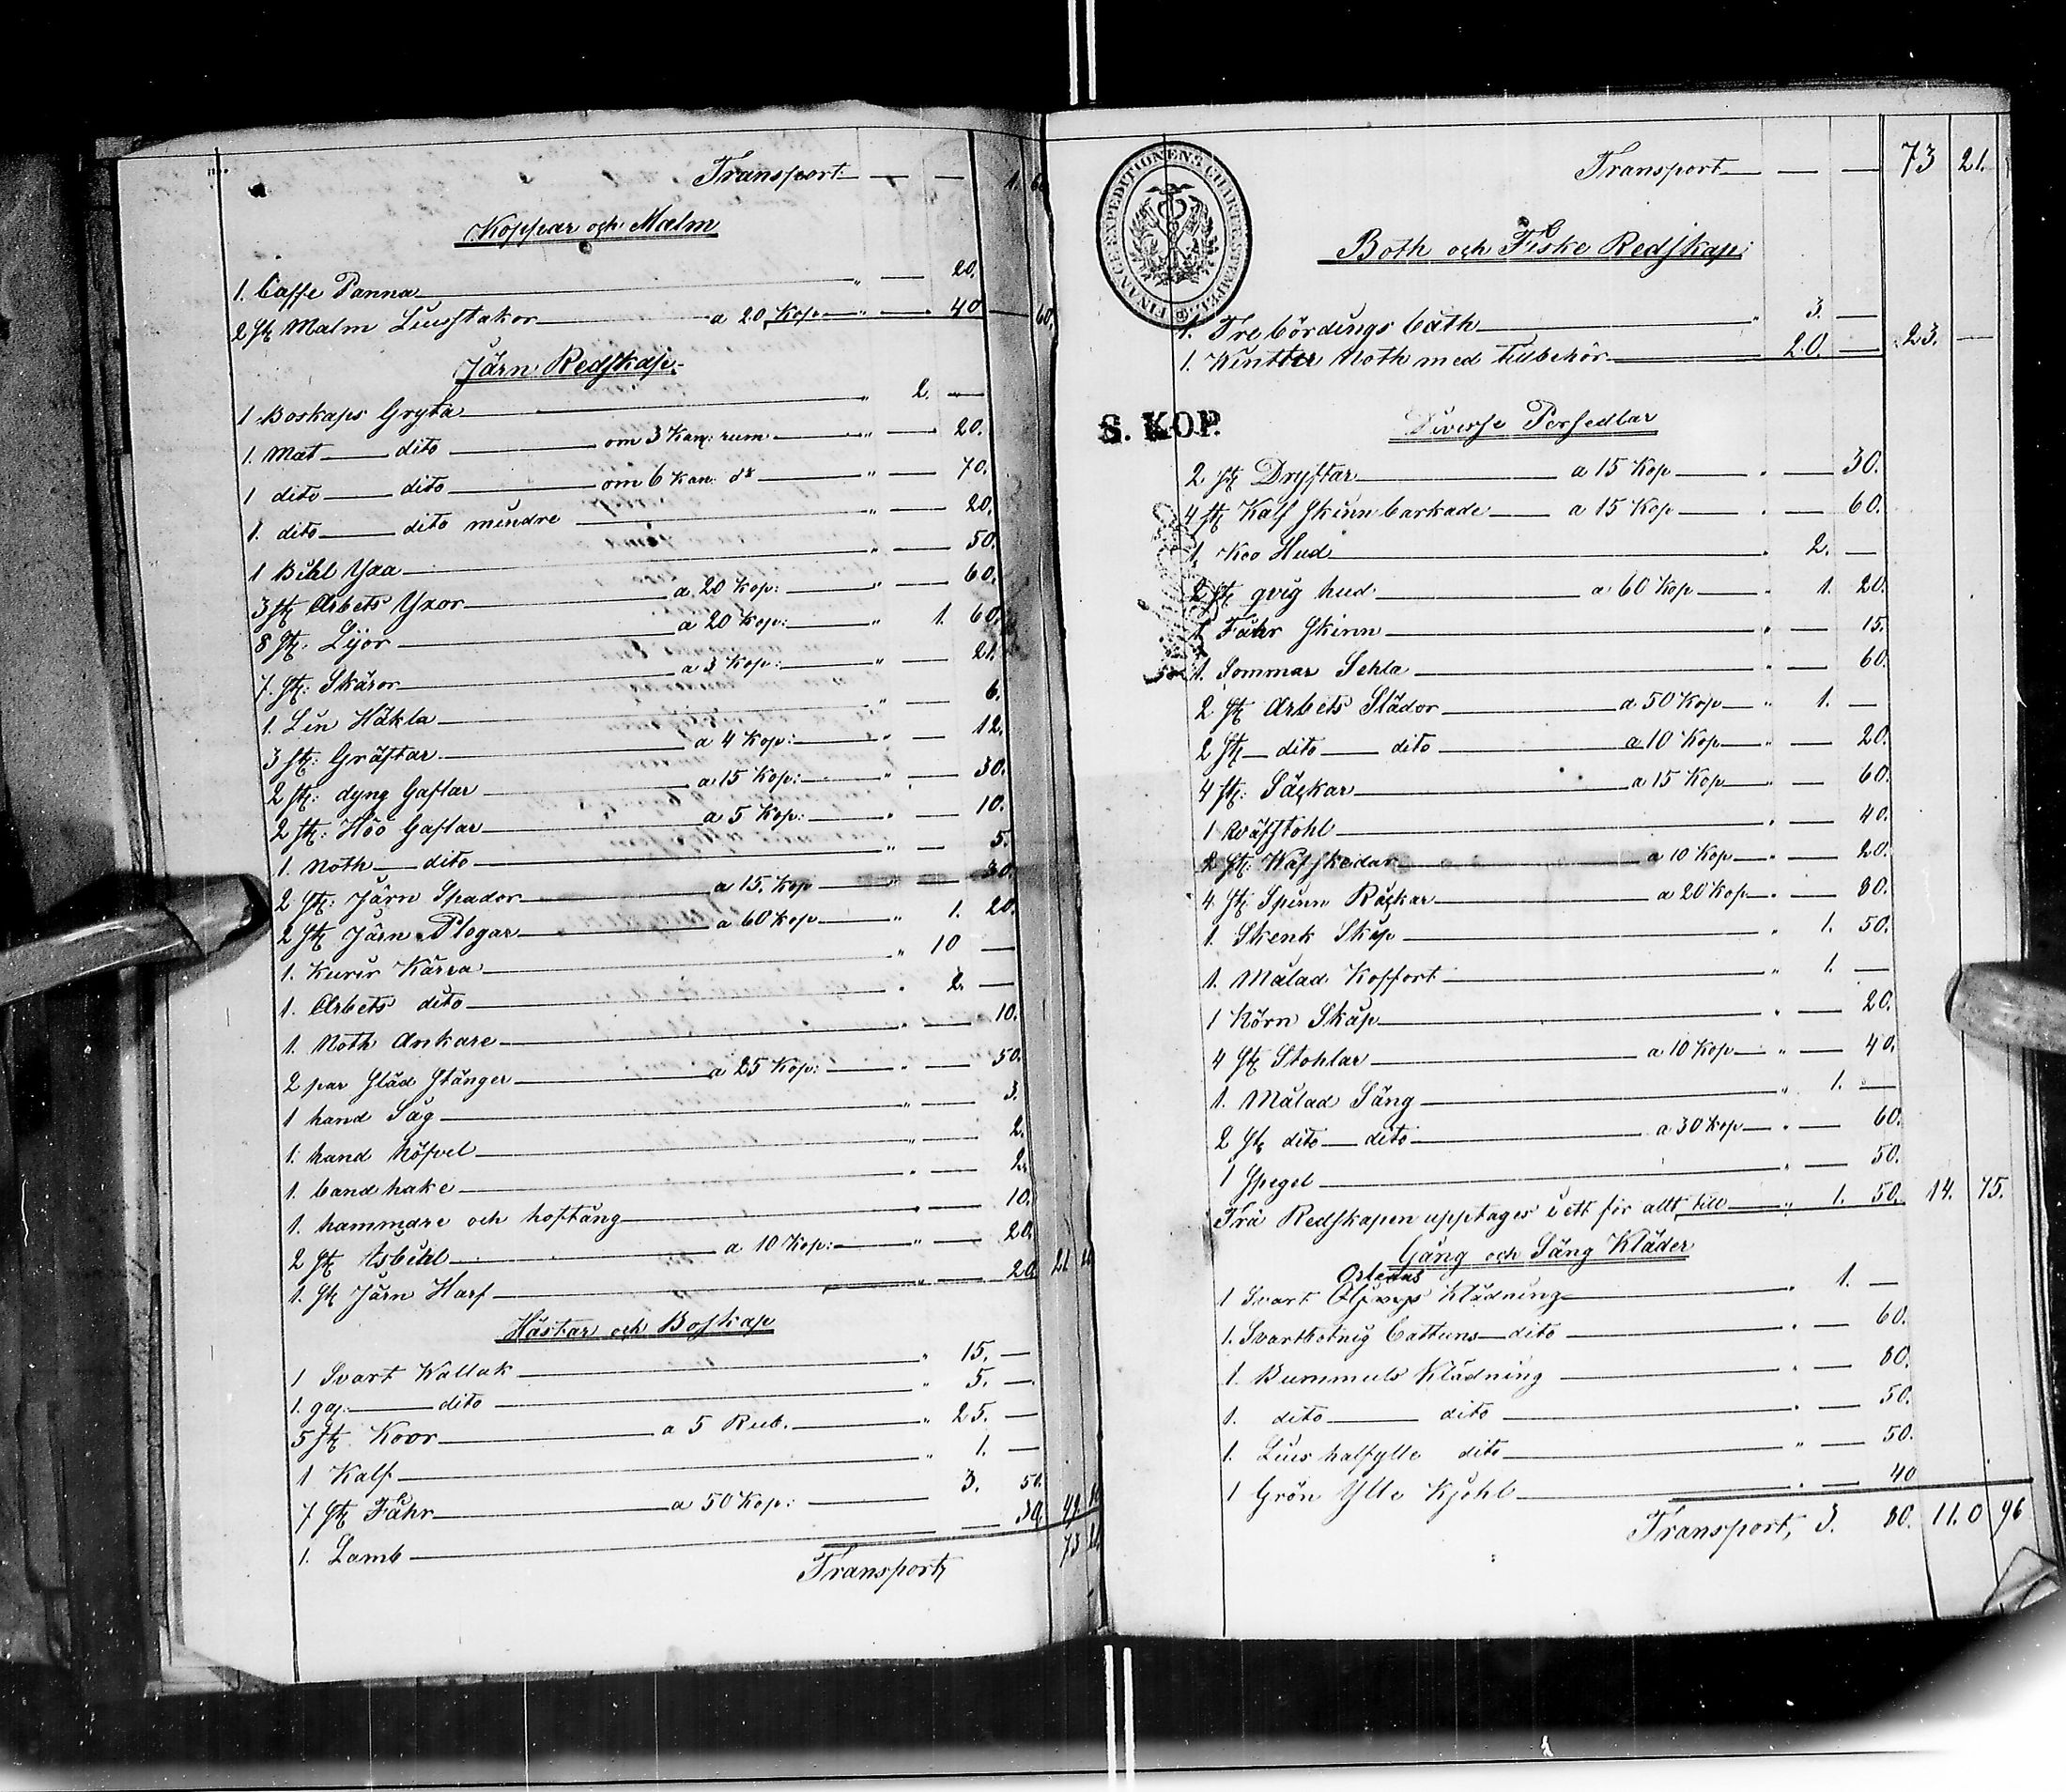 Transport 1. 60
Koppar och Malm
1. Caffe Panna " — 20.
2 st Malm Liusstakor a 20 Kop " — 40 — 60.
Järn Redskap.
1 Boskaps Gryta " 2. —
1. Mat dito om 3 Kan: rum " — 20.
1 dito dito om 6 Kan: do " — 70.
1. dito dito mindre " — 20.
1 Bihl Yxa " — 50.
3 st Arbets Yxor a 20 Kop: " — 60.
8 st. Lijor a 20 Kop: " 1. 60.
7. st: Skäror a 3 Kop: " — 21.
1. Lin Häkla " — 6.
3 st: Gräftar a 4 Kop: " — 12.
2 st: dyng Gaflar a 15 Kop: " — 30.
2 st: Höö Gaflar a 5 Kop: " — 10.
1. Noth dito " — 5.
2 st: Järn Spador a 15. Kop " — 30.
2 st Järn Plogar a 60 Kop " 1. 20.
1. Kurir Kärra " 10 —
1. Arbets dito " 2. —
1. Noth Ankare " — 10.
2 par Släd Stänger a 25 Kop: " — 50.
1 hand Såg " — 3.
1. hand Höfvel " — 2.
1. band hake " — 2.
1. hammare och hoftång " — 10.
2 st Isbihl a 10 Kop: " — 20.
1. st Järn Harf " — 20. 21
Hästar och Boskap
1 Svart Wallak " 15. —
1. dito " 5. —
5 st Koor a 5 Rub. " 25. —
1 Kalf " 1. —
7 st Fåhr a 50 Kop: 3. 50.
1. Lamb — 30. 49
Transport, 73 21.
Transport 73 21.
FINANCE EXPEDITIONENS CHARTÆ STEMPEL
Both och Fiske Redskap:
1. Trebördings båth " 3. —
1. Wintter Noth med tilbehör 20. — 23. —
S. KOP.
Diverse Persedlar
2. st Dryftar a 15 Kop " — 30.
4 st Kalf Skinn barkade a 15 Kop " — 60.
1. Koo Hud " 2. —
2 st qvig hud a 60 Kop " 1. 20.
1 Fåhr Skinn " — 15.
1. Sommar Sehla " — 60.
2 st Arbets Slädor a 50 Kop " 1. —
2 st dito dito a 10 Kop " — 20.
4 st: Säckar a 15 Kop " — 60.
1 Wäfstohl " — 40.
2 st: Wäfskeidar a 10 Kop " — 20.
4. st: Spinn Råckar a 20 Kop " — 80.
1. Skenk Skåp " 1. 50.
1. Målad Koffort " 1. —
1 Hörn Skåp " — 20.
4 st Stohlar a 10 Kop " — 40.
1. Målad Säng " 1. —
2 st dito dito a 30 Kop " — 60.
1 Spegel " — 50.
Trä Redskapen upptages i ett för allt till " 1. 50. 14. 75.
Gång och Säng Kläder
Orleans
1 Svart Klädning " 1. —
1. Svartbotnig Cattuns dito " — 60.
1. Bummuls Klädning " — 80.
1. dito dito " — 50.
1. Lius halfylle dito " — 50.
1 Grön Ylle Kjohl " — 40
Transport, 3. 80. 110 96